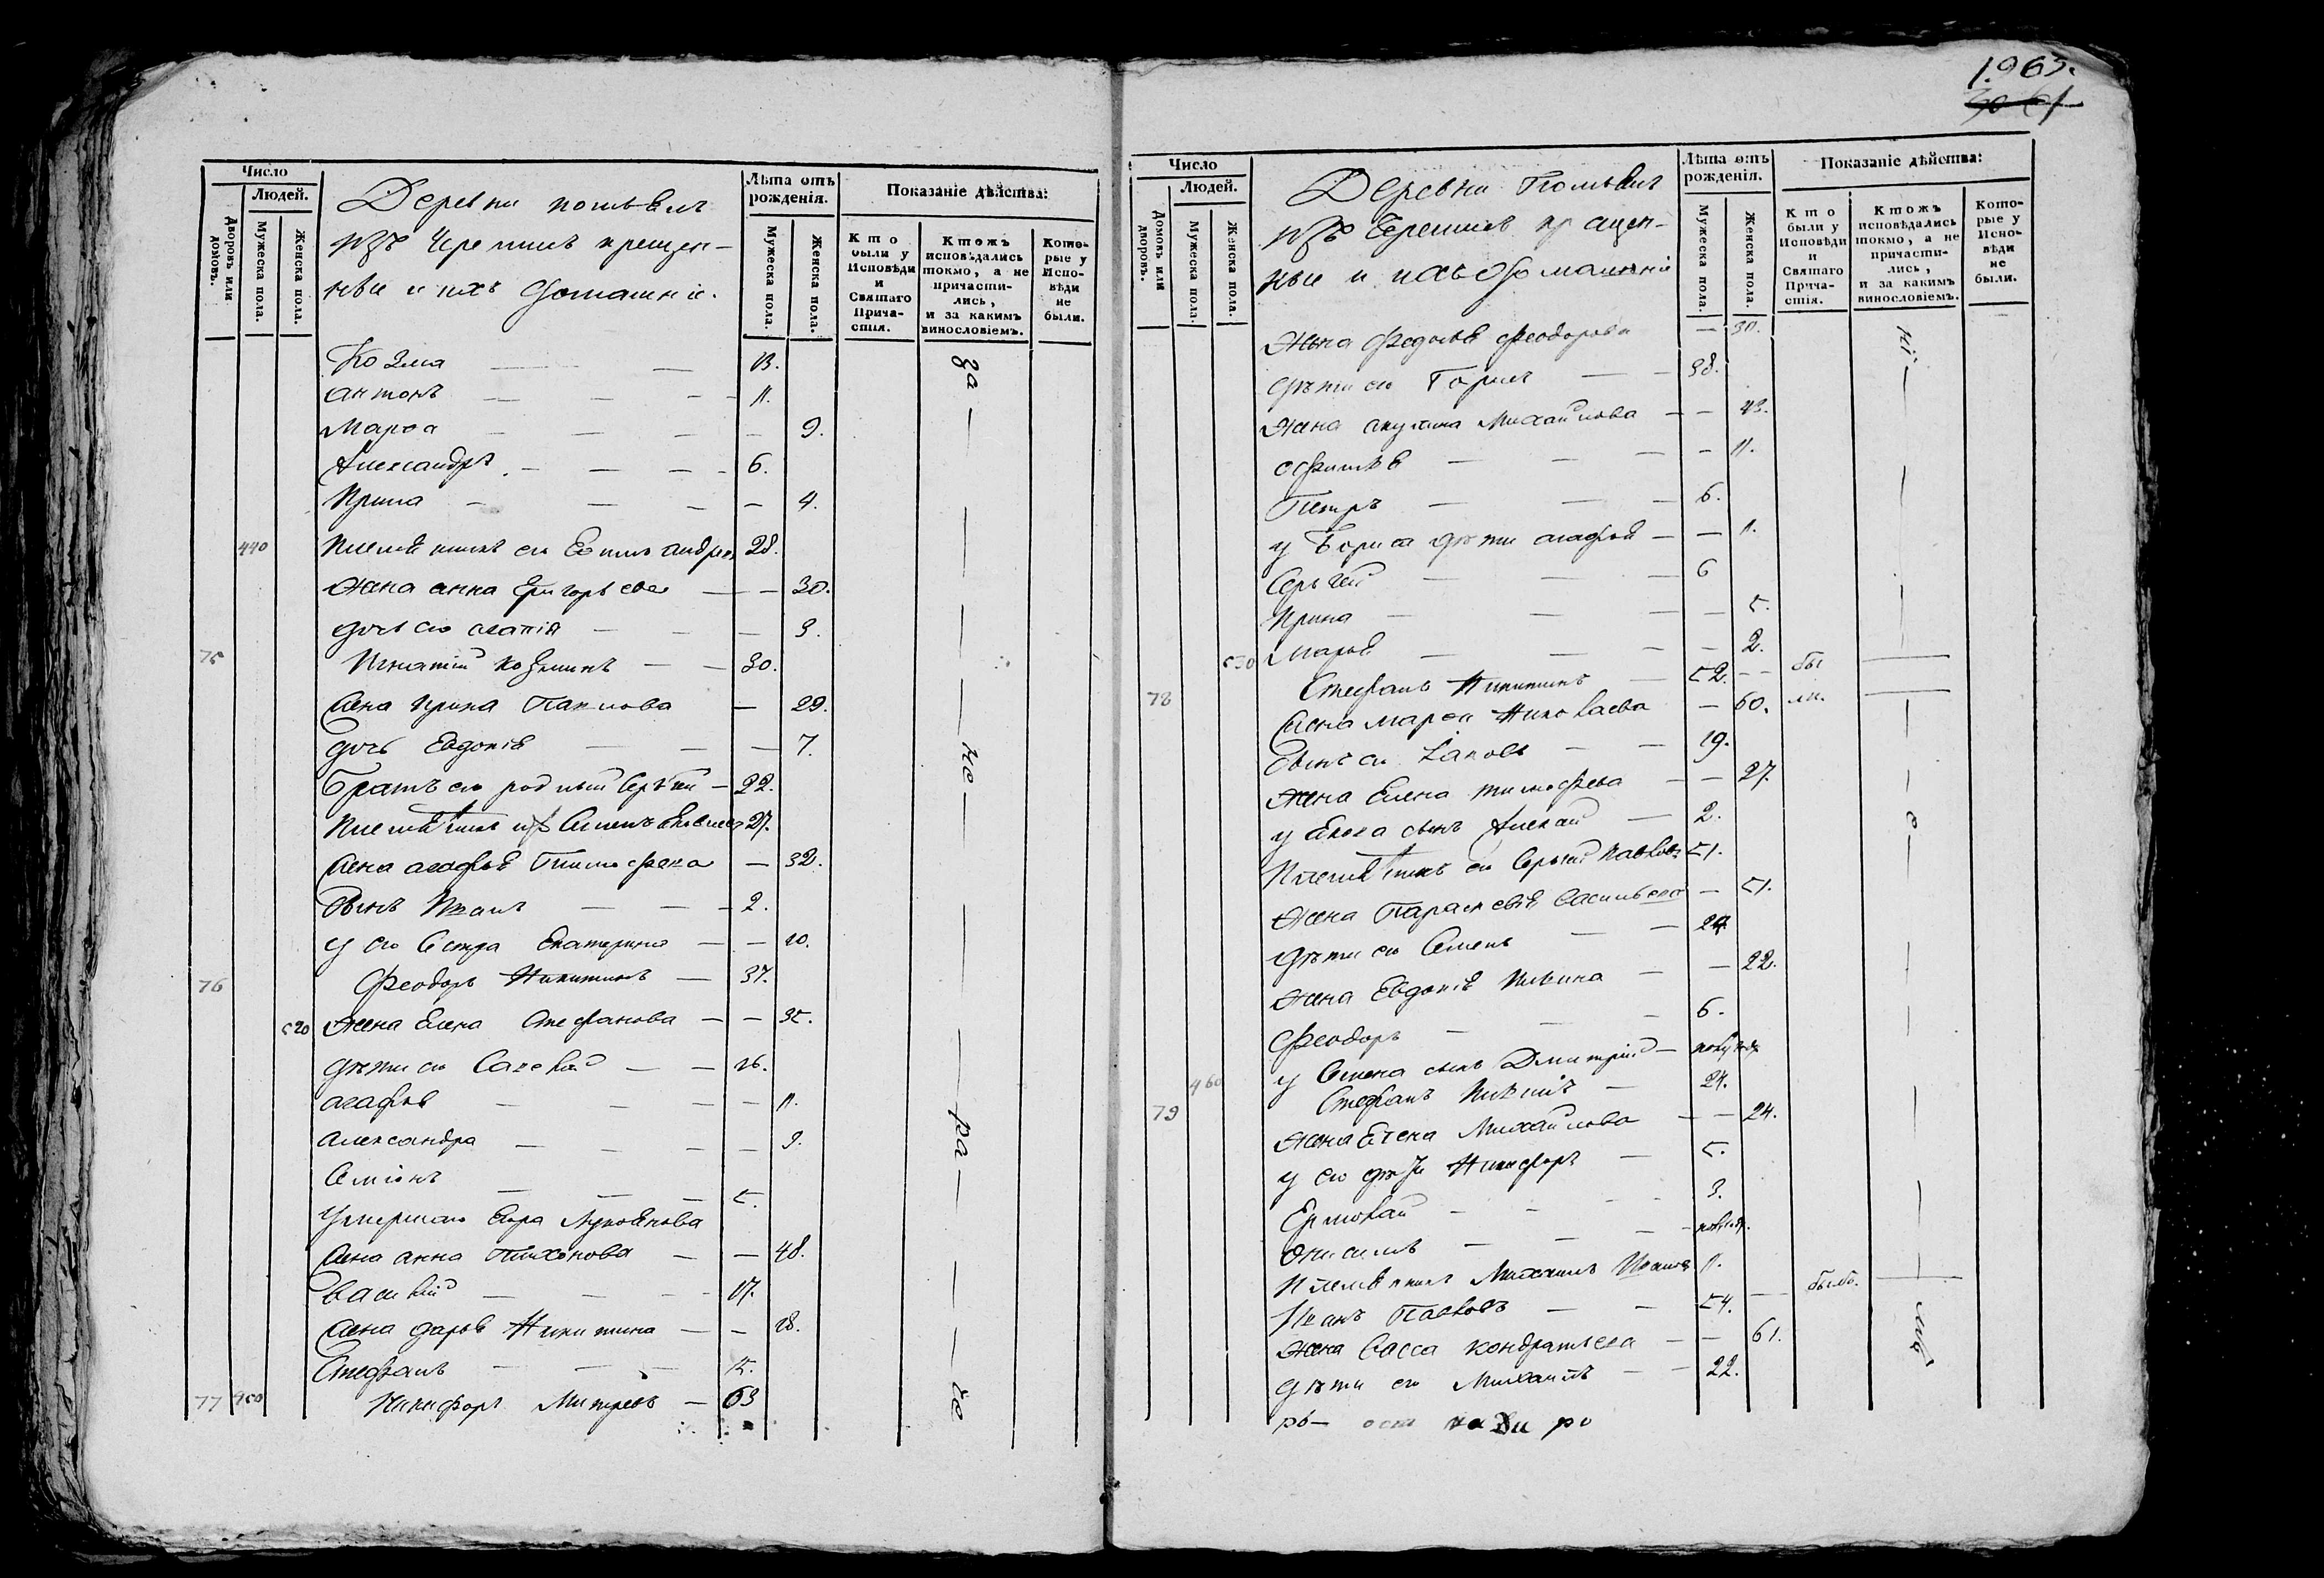 1963.
Число
Людей.
Дворовъ или домовъ.
Мужеска пола.
Женска пола.
Деревни
изъ Черемисъ крещен-
ныи и ихъ домашніе.
Лѣта отъ рожденія.
Мужеска пола.
Женска пола.
Показаніе дѣйства:
Кто были у Исповѣди и Святаго Прича-стія.
Ктожъ исповѣдались токмо, а не причасти-лись, и за какимъ винословіемъ.
Кото-рые у Испо-вѣди не были.
Козма 13.
антонъ 11.
Марѳа 9.
Александръ 6.
Ирина 4.
440 племянникъ его 28.
жена анна Григорьева 30.
дочь его агапія 3.
75 Игнатій Козминъ 30.
жена Ирина Павлова 29.
дочь Евдокія 7.
братъ его родный Сергѣй 22.
племянникъ ихъ Семенъ 27.
жена агафья Тимофеева 32.
сынъ Иванъ 2.
у его сестра Екатерина 20.
76 Феодоръ Никитинъ 37.
520 жена Елена Стефанова 35.
дѣти его Савелій 16.
агафья 11.
александра 9.
Симіонъ 5.
умершаго Егора Лукоянова
жена анна Тихонова 48.
Василій 17.
жена дарья Никитина 18.
Стефанъ 15.
77 450 Никифоръ Митревъ 63
за
не
ра
де
Число
Людей.
Домовъ или дворовъ.
Мужеска пола.
Женска пола.
Деревни
изъ Черемисъ крещен-
ныи и ихъ домашніи
Лѣта отъ рожденія.
Мужеска пола.
Женска пола.
Показаніе дѣйства:
Кто были у Исповѣди и Святаго Прича-стія.
Ктожъ исповѣдались токмо, а не причасти-лись, и за какимъ винословіемъ.
Кото-рые у Испо-вѣди не были.
жена Федосья Феодорова
дѣти его Борисъ 38.
жена акулина Михайлова 43.
офимья 11.
Петръ 6.
у Бориса дѣти агафья 11.
Сергѣй 6
Ирина 5.
530 Марья 2.
78 Стефанъ Никитинъ 52. бы
жена марѳа Николаева 60. ли.
сынъ его Іаковъ 19.
жена Елена тимофеева 27.
у Якова сынъ Алексей 2.
племянникъ его Сергѣй Павловъ 51.
жена Параскевія Васильева 51.
дѣти его Семенъ 24
жена Евдокія Ильина 22.
Феодоръ 6.
460 у Семена сынъ Дмитрій
79 Стефанъ 24.
жена Елена Михайлова 24.
у его дѣти Никифоръ 5.
Ермолай 3.
Онисимъ
племянникъ Михаилъ Ивановъ 11.
Иванъ Павловъ 54. былъ.
жена Васса кондратьева 61.
дѣти его Михаилъ 22.
ні
е
мъ